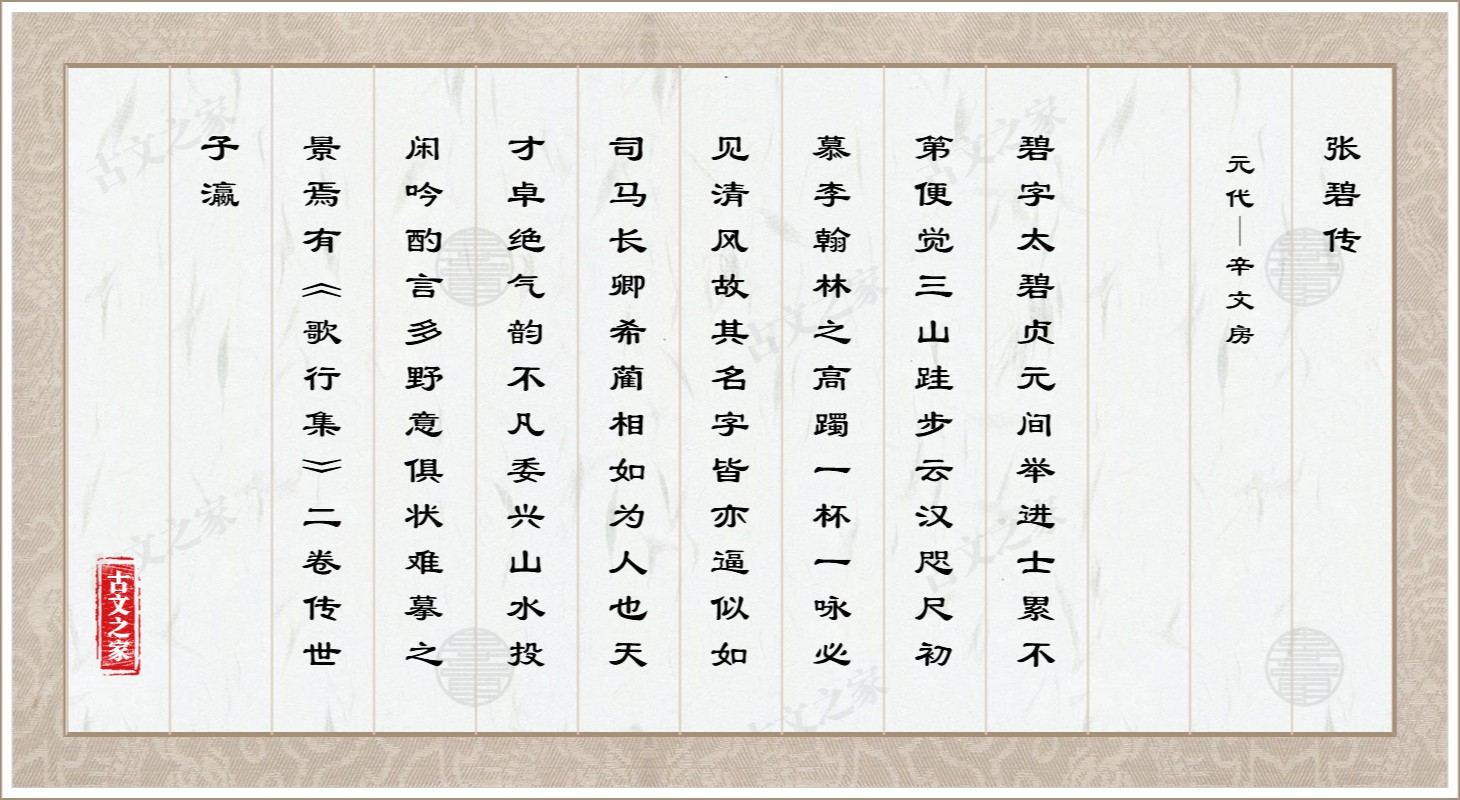 张碧传
元代—辛文房
碧字太碧贞元间举进士累不
第便觉三山跬步云汉咫尺初
慕李翰林之高躅一杯一咏必
见清风故其名字皆亦逼似如
司马长卿希蔺相如为人也天
才卓绝气韵不凡委兴山水投
闲吟酌言多野意俱状难摹之
景焉有《歌行集》二卷传世
子瀛
古文之家